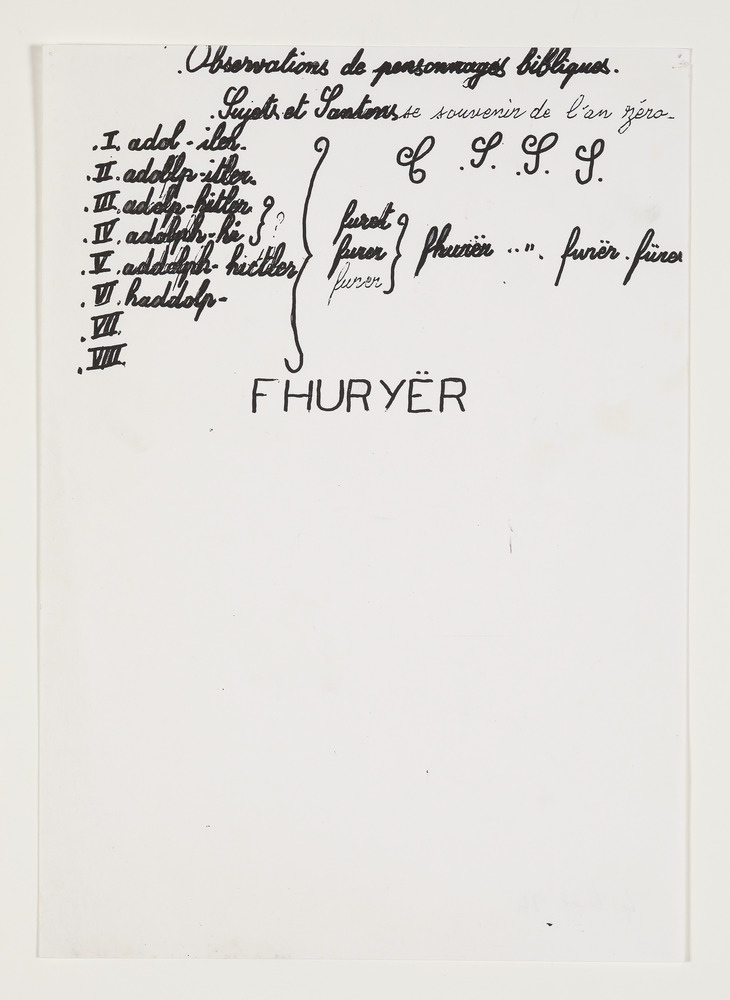 .Observations de personnages bibliques.
.Sujets et Santons se souvenir de l'an zéro-
.I. adol-iler.
.II. adollp-itler.
.III. adelp-hitler.
.IV. adolph-hi ?
.V. addolph-hittler
.VI. haddolp-
.VII.
.VIII.
C .S. .S. S.
furet
furer
furer
fhurier .."". furër . fürer
FHURYËR